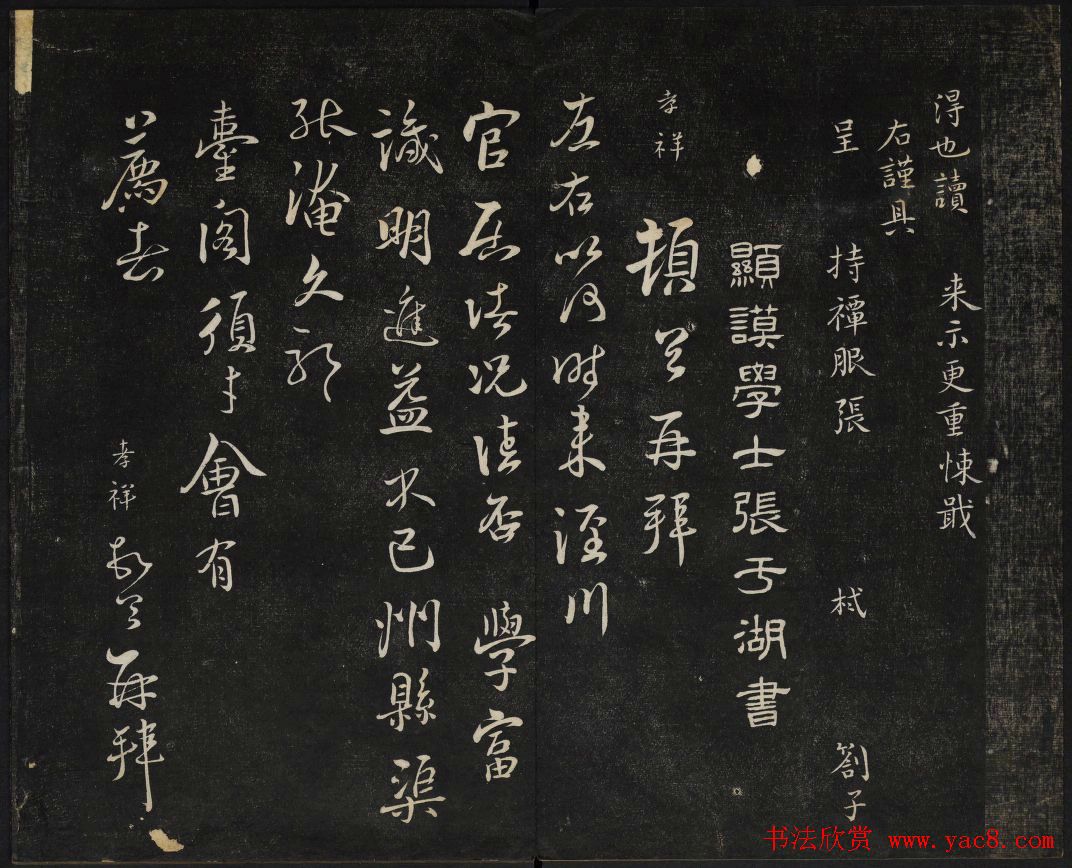 得也讀 来示更重悚戢
右謹具
呈 持禫服張 栻 劄子
顯謨學士張于湖書
孝祥 頓首再拜
左右以何时来涇川
官居情况佳否 學富
識明進益不已州縣渠
能淹久耶
臺閣須才會有
薦者 孝祥 再拜
书法欣赏 www.yac8.com